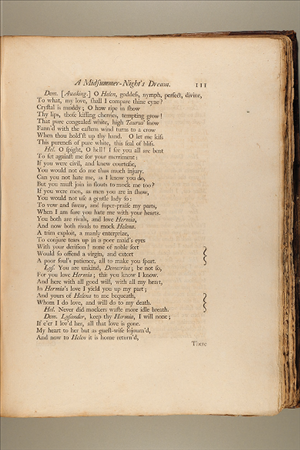 A Midsummer-Night's Dream. 111
Dem. [Awaking.] O Helen, goddeſs, nymph, perfect, divine,
To what, my love, ſhall I compare thine eyne?
Cryſtal is muddy; O how ripe in ſhow
Thy lips, thoſe kiſſing cherries, tempting grow!
That pure congealed white, high Taurus' ſnow
Fann'd with the eaſtern wind turns to a crow
When thou hold'ſt up thy hand. O let me kiſs
This pureneſs of pure white, this ſeal of bliſs.
Hel. O ſpight, O hell! I ſee you all are bent
To ſet againſt me for your merriment:
If you were civil, and knew courteſie,
You would not do me thus much injury.
Can you not hate me, as I know you do,
But you muſt join in flouts to mock me too?
If you were men, as men you are in ſhow,
You would not uſe a gentle lady ſo:
To vow and ſwear, and ſuper-praiſe my parts,
When I am ſure you hate me with your hearts.
You both are rivals, and love Hermia,
And now both rivals to mock Helena.
A trim exploit, a manly enterprize,
To conjure tears up in a poor maid's eyes
With your deriſion! none of noble ſort
Would ſo offend a virgin, and extort
A poor ſoul's patience, all to make you ſport.
Lyſ. You are unkind, Demetrius; be not ſo,
For you love Hermia; this you know I know.
And here with all good will, with all my heart,
In Hermia's love I yield you up my part;
And yours of Helena to me bequeath,
Whom I do love, and will do to my death.
Hel. Never did mockers waſte more idle breath.
Dem. Lyſander, keep thy Hermia, I will none;
If e'er I lov'd her, all that love is gone.
My heart to her but as gueſt-wiſe ſojourn'd,
And now to Helen it is home return'd,
There